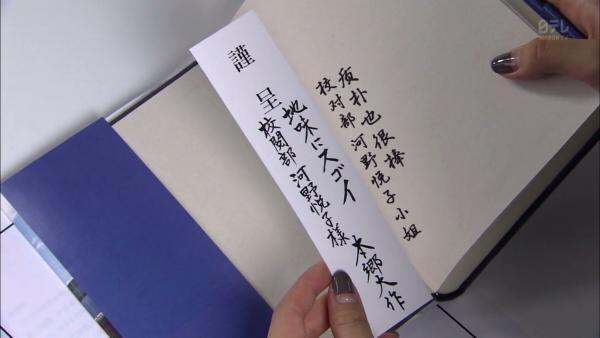 日テレ
质朴也很棒
校对部 河野悦子小姐
謹呈
地味にスゴイ
校閲部 河野悦子様
本郷大作